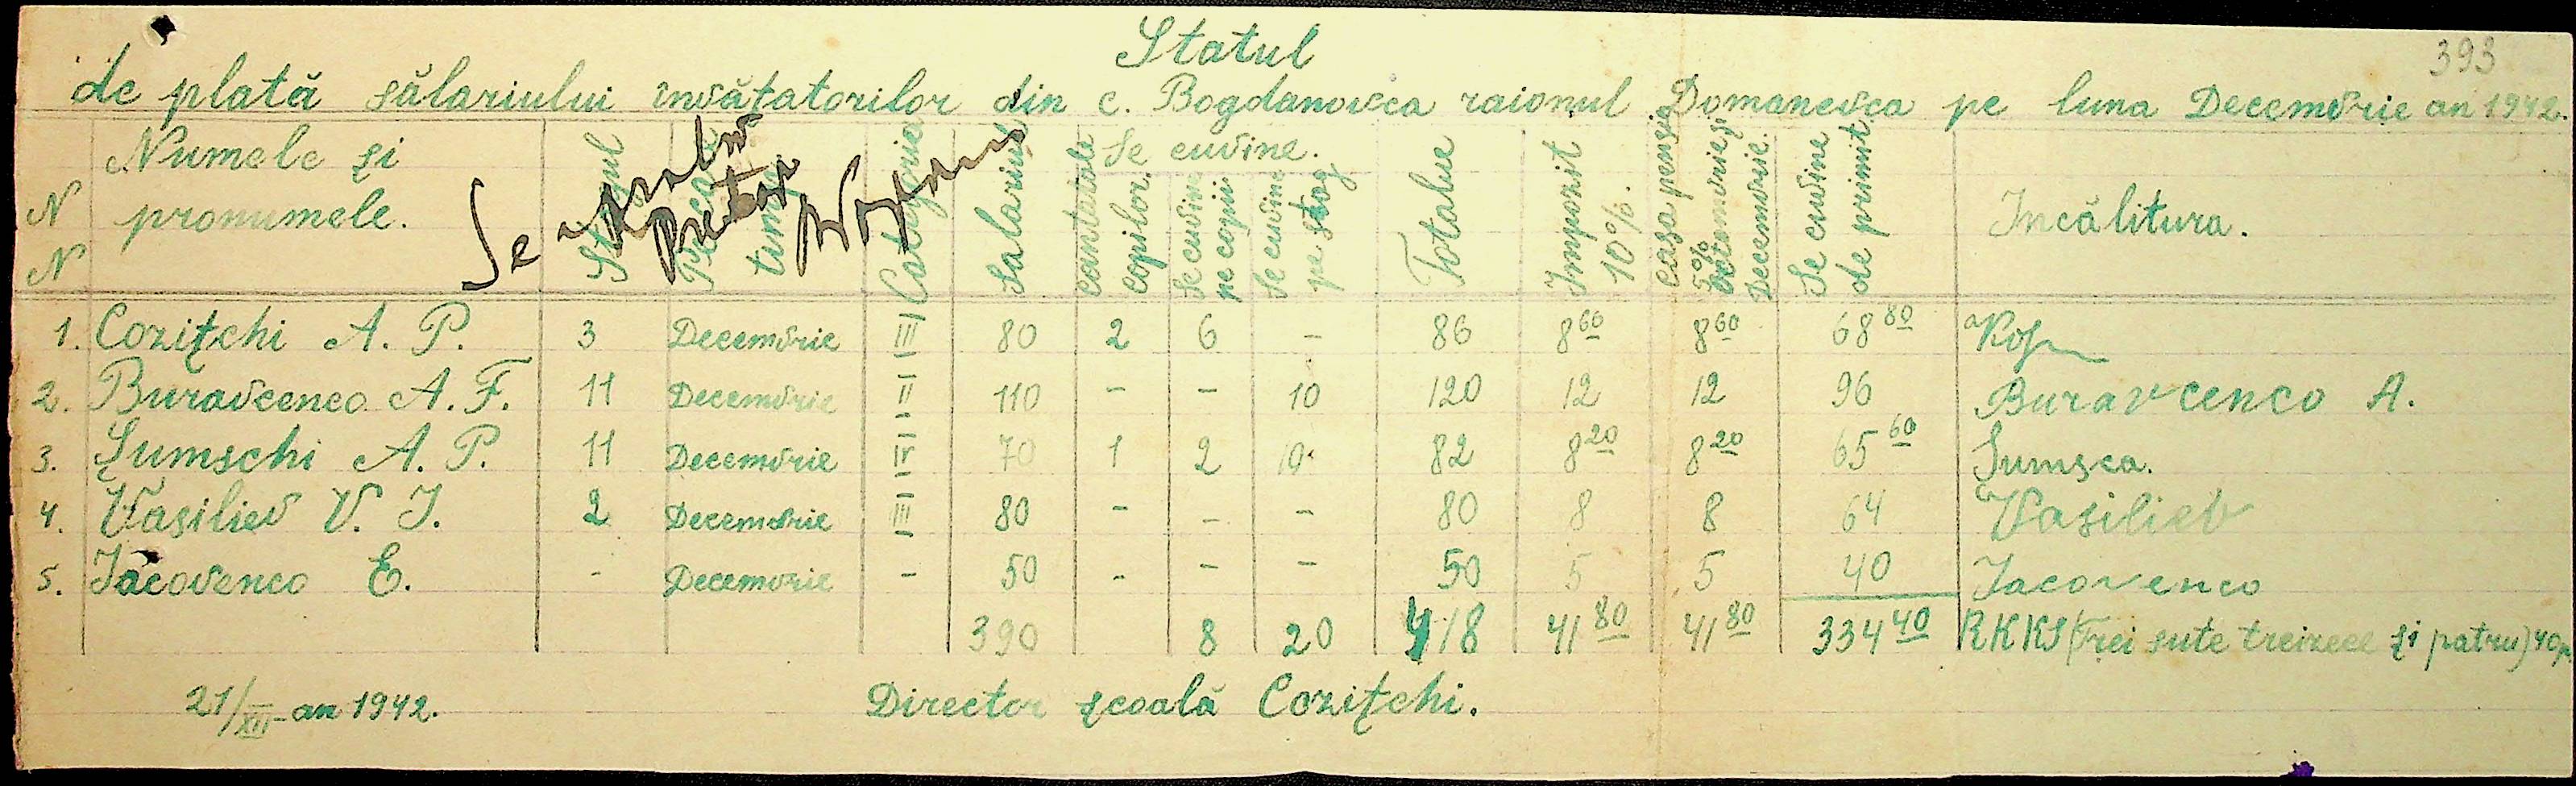 393
Statul
de plată sălariului învățatorilor din c. Bogdanovca raionul Domanevca pe luna Decemvrie an 1942.
N N | Numele și pronumele. | Stagul | Pe care timp | Categoria | Salariul | Cantatate copilor | Se cuvine. | Se cuvine pe copii | Se cuvine pe stag | Totalul | Impozit 10%. | Casa pensie 5% Octemvrie și Decemvrie. | Se cuvine de primit. | Incălitura.
Se
Pretor
1. Cozițchi A. P. 3 Decemvrie III 80 2 6 - 86 8 60 8 60 68 80
2. Buravcenco A. F. 11 Decemvrie II 110 - - 10 120 12 12 96 Buravcenco A.
3. Șumschi A. P. 11 Decemvrie IV 70 1 2 10 82 8 20 8 20 65 60 Șumsca.
4. Vasiliev V. I. 2 Decemvrie III 80 - - - 80 8 8 64 Vasiliev
5. Iacovenco E. - Decemvrie - 50 - - - 50 5 5 40 Iacovenco
390 8 20 418 41 80 41 80 334 40 RKKS (Trei sute treizece și patru) 40
21/XII an 1942. Director școală Cozițchi.